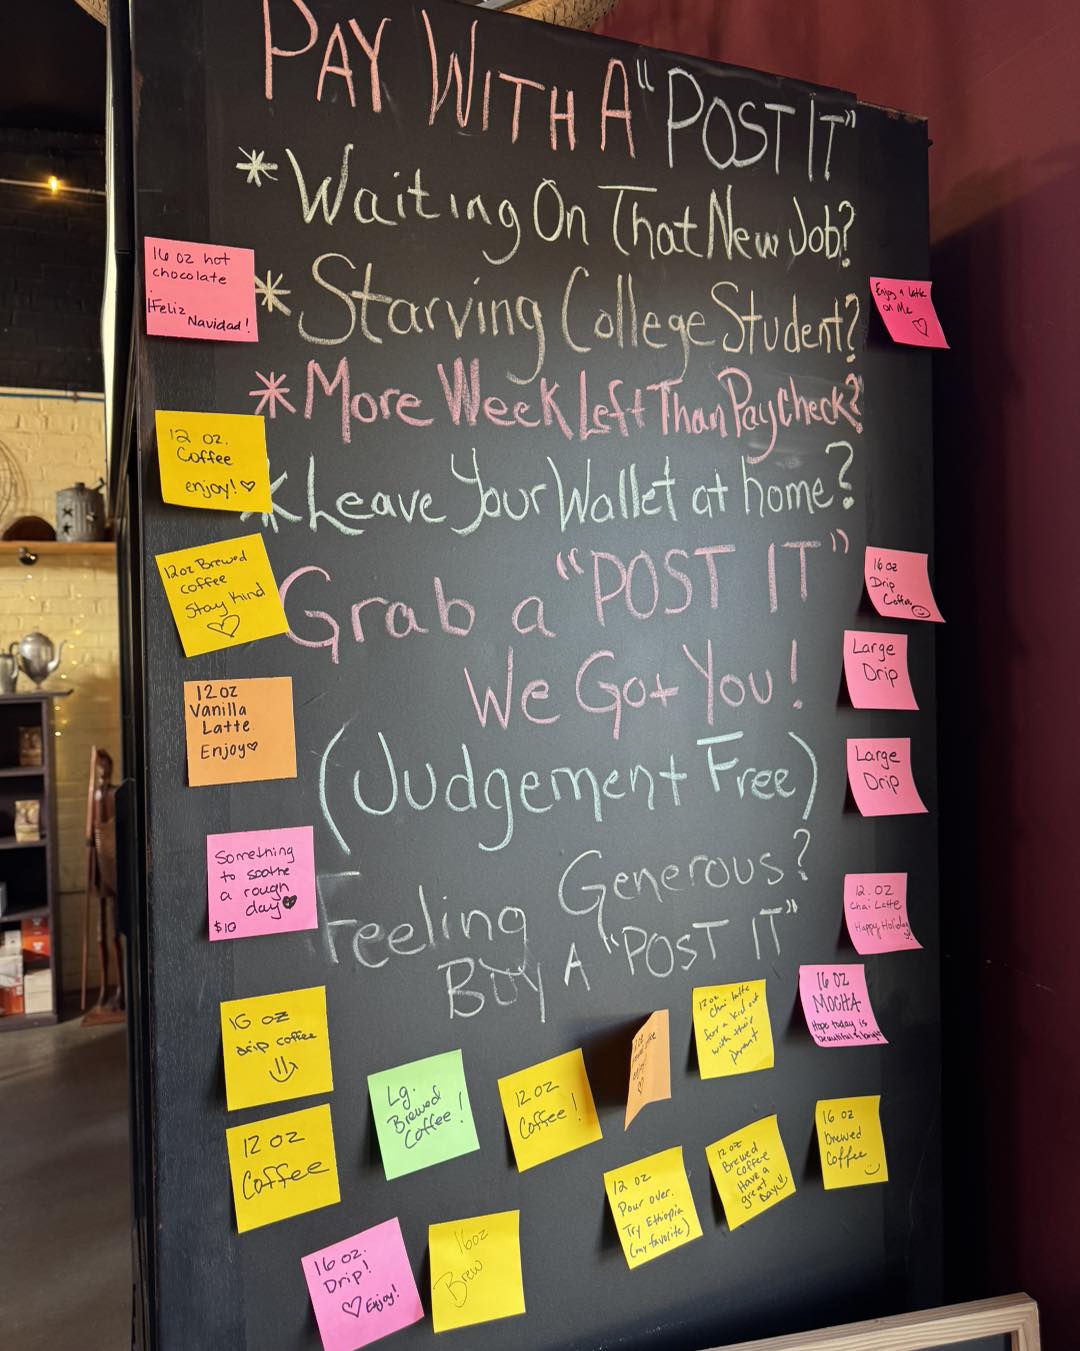 PAY WITH A "POST IT"
*Waiting On That New Job?
*Starving College Student?
*More Week Left Than Paycheck?
*Leave Your Wallet at home?
Grab a "POST IT"
We Got You!
(Judgement Free)
Feeling Generous?
BUY A "POST IT"
16 oz hot
chocolate
¡Feliz
Navidad!
12 oz.
Coffee
enjoy! ♡
12oz Brewed
coffee
Stay Kind
♡
12oz
Vanilla
Latte
Enjoy♡
Something
to soothe
a rough
day
$10
16 oz
drip coffee
12 oz
Coffee
16 oz.
Drip!
♡ Enjoy!
Lg.
Brewed
Coffee!
16oz
Brew
12 oz
Coffee!
12oz
Chai latte
for a kid out
with their
parent
12 oz
Pour over.
Try Ethiopia
(my favorite)
12oz
Brewed
coffee
Have a
great
Day
16 oz
MOCHA
Hope today is
beautiful & bright
16 oz
brewed
Coffee
Enjoy a latte
on Me
♡
16 oz
Drip
Coffee
Large
Drip
Large
Drip
12. OZ
Chai Latte
Happy Holidays